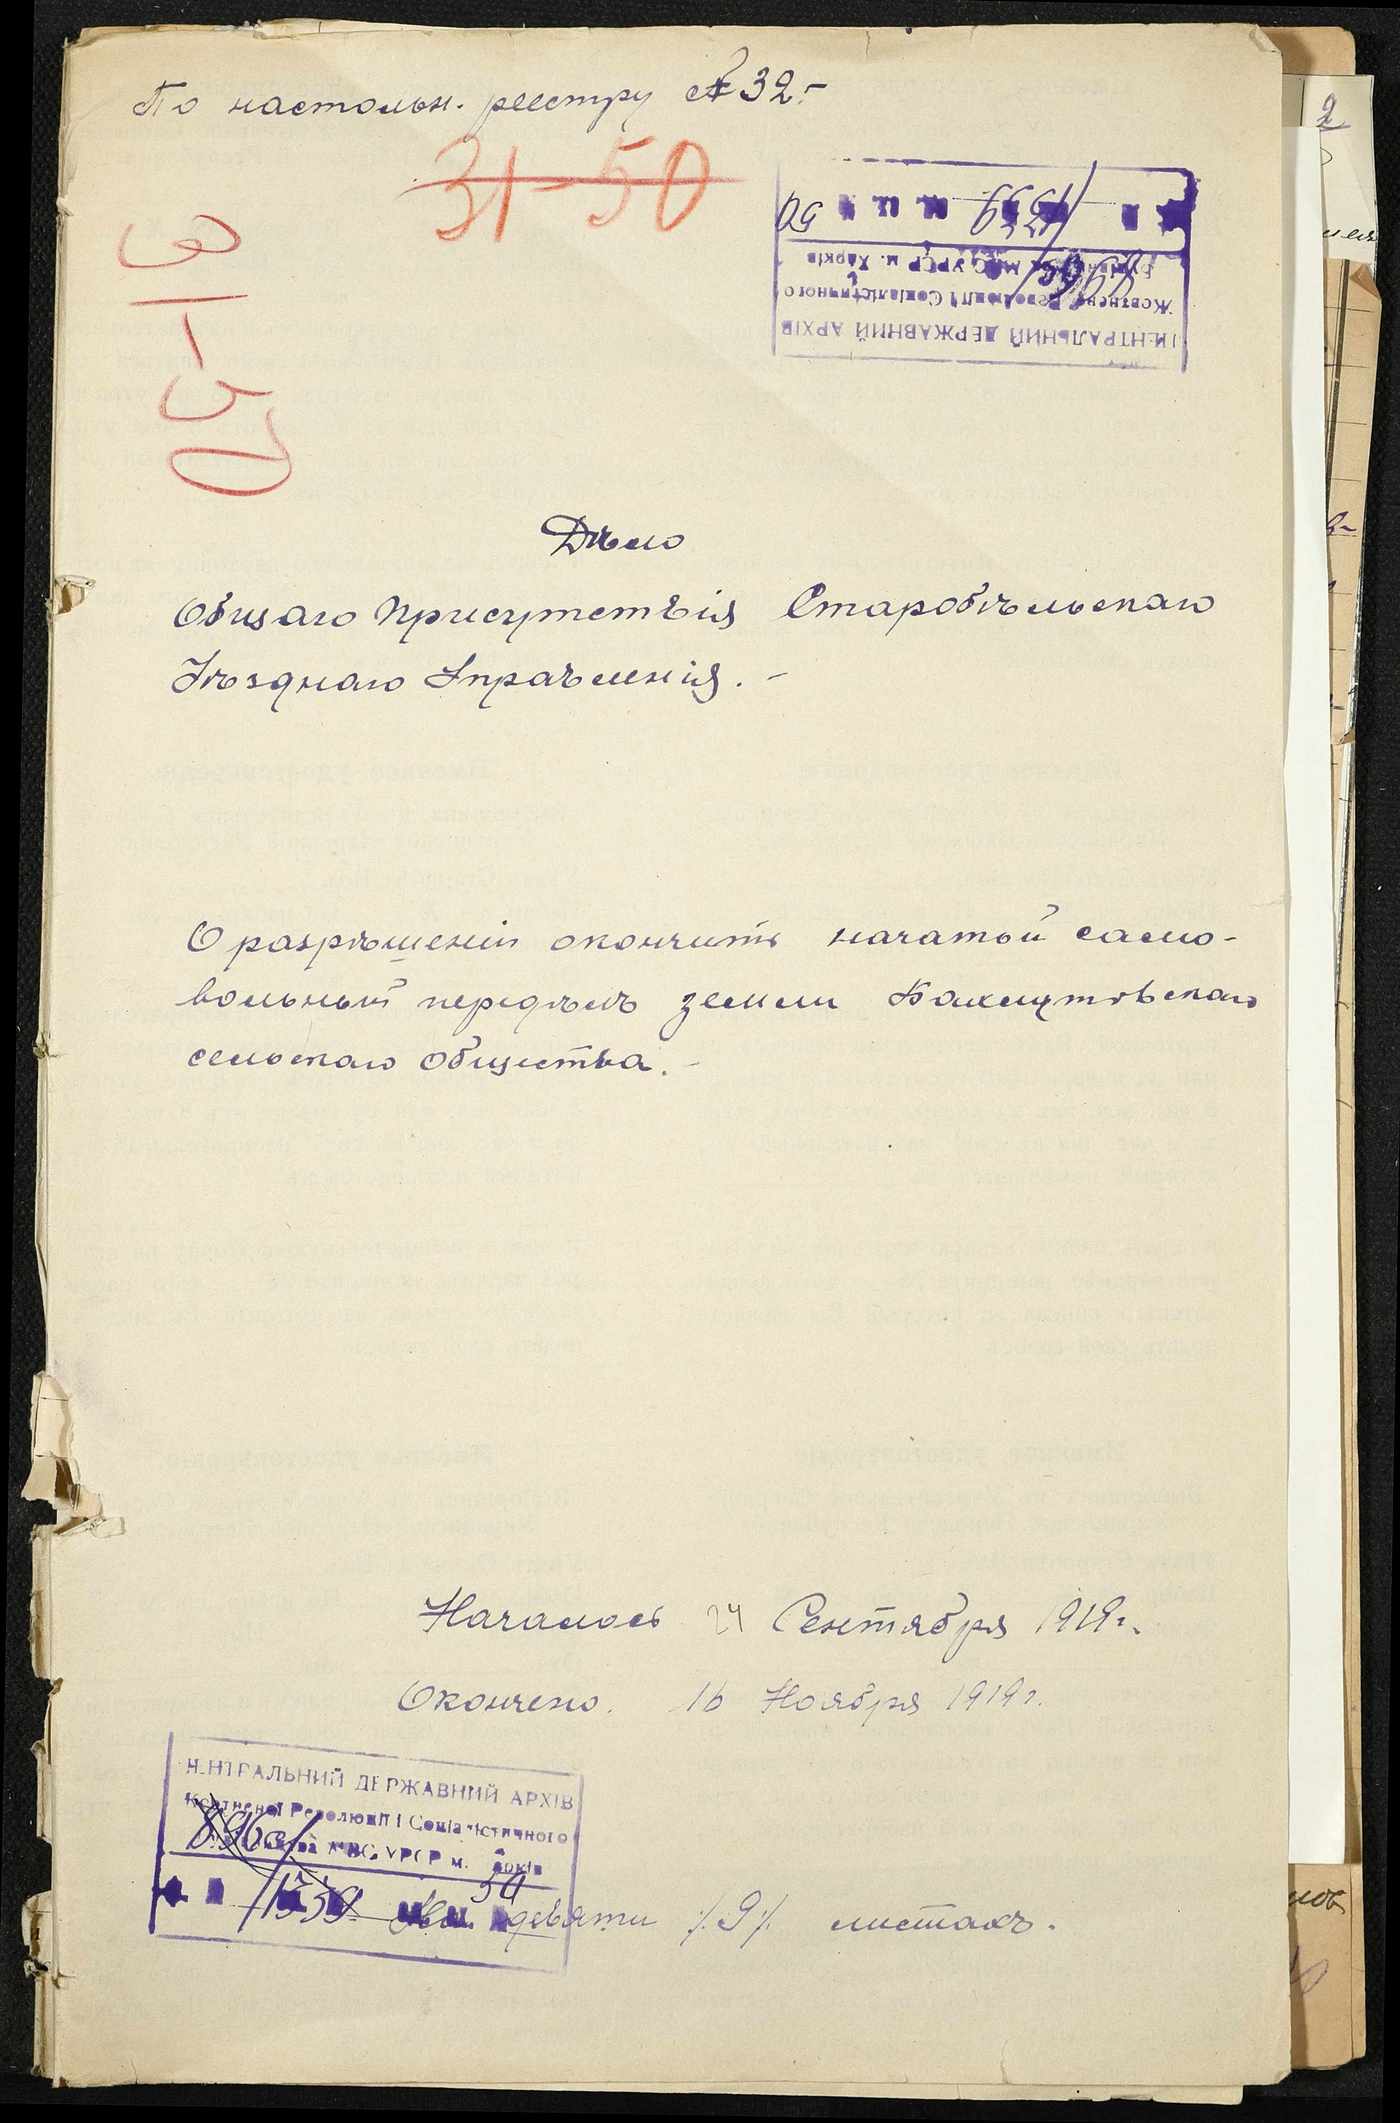 По настольн. реестру № 32.-
31-50
31-50
ЦЕНТРАЛЬНИЙ ДЕРЖАВНИЙ АРХІВ
Жовтневої Революції і Соціалістичного
Будівництва МВС УРСР м. Харків
50
Дѣло
Общаго Присутствія Старобѣльскаго
Уѣзднаго Управленія. -
О разрѣшеніи окончить начатый само-
вольный передѣлъ земли Бахмутовскаго
сельскаго общества. -
Началось 24 Сентября 1919 г.
Окончено. 16 Ноября 1919 г.
ЦЕНТРАЛЬНИЙ ДЕРЖАВНИЙ АРХІВ
Жовтневої Революції і Соціалістичного
Будівництва МВС УРСР м. Харків
50
На девяти /.9/. листахъ.
2